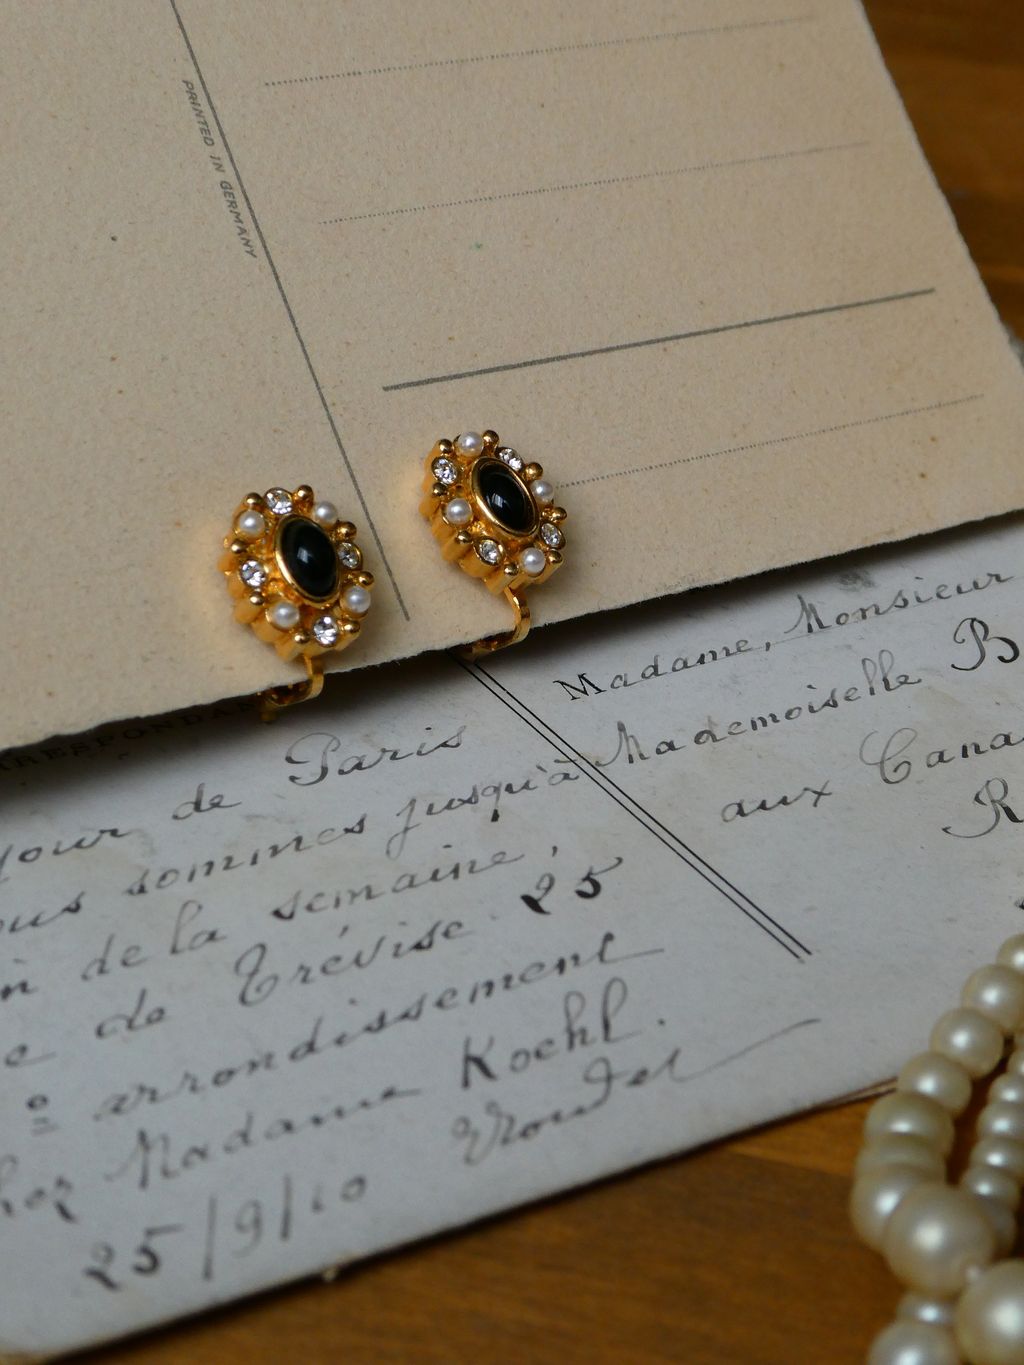 PRINTED IN GERMANY
RRESPONDAN
jour de Paris
ous sommes jusqu'à
n de la semaine,
e de Trévise 25
e arrondissement
hez Madame Koehl.
25/9/10
Madame, Monsieur
Mademoiselle B
aux Cana
R